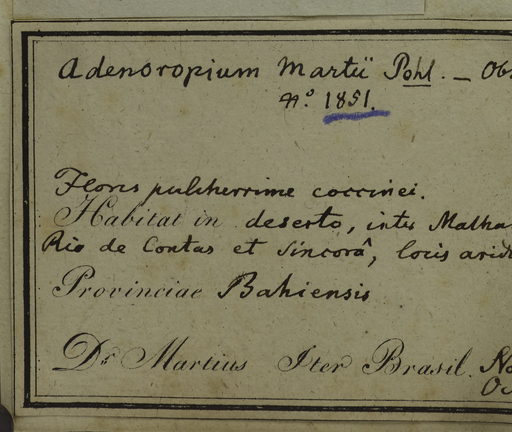 Adenoropium Martii Pohl. —
n.º 1851.
Flores pulcherrime coccinei.
Habitat in deserto, inter
Rio de Contas et Sincorâ, locis
Provinciae Bahiensis
Dr. Martius Iter Brasil.